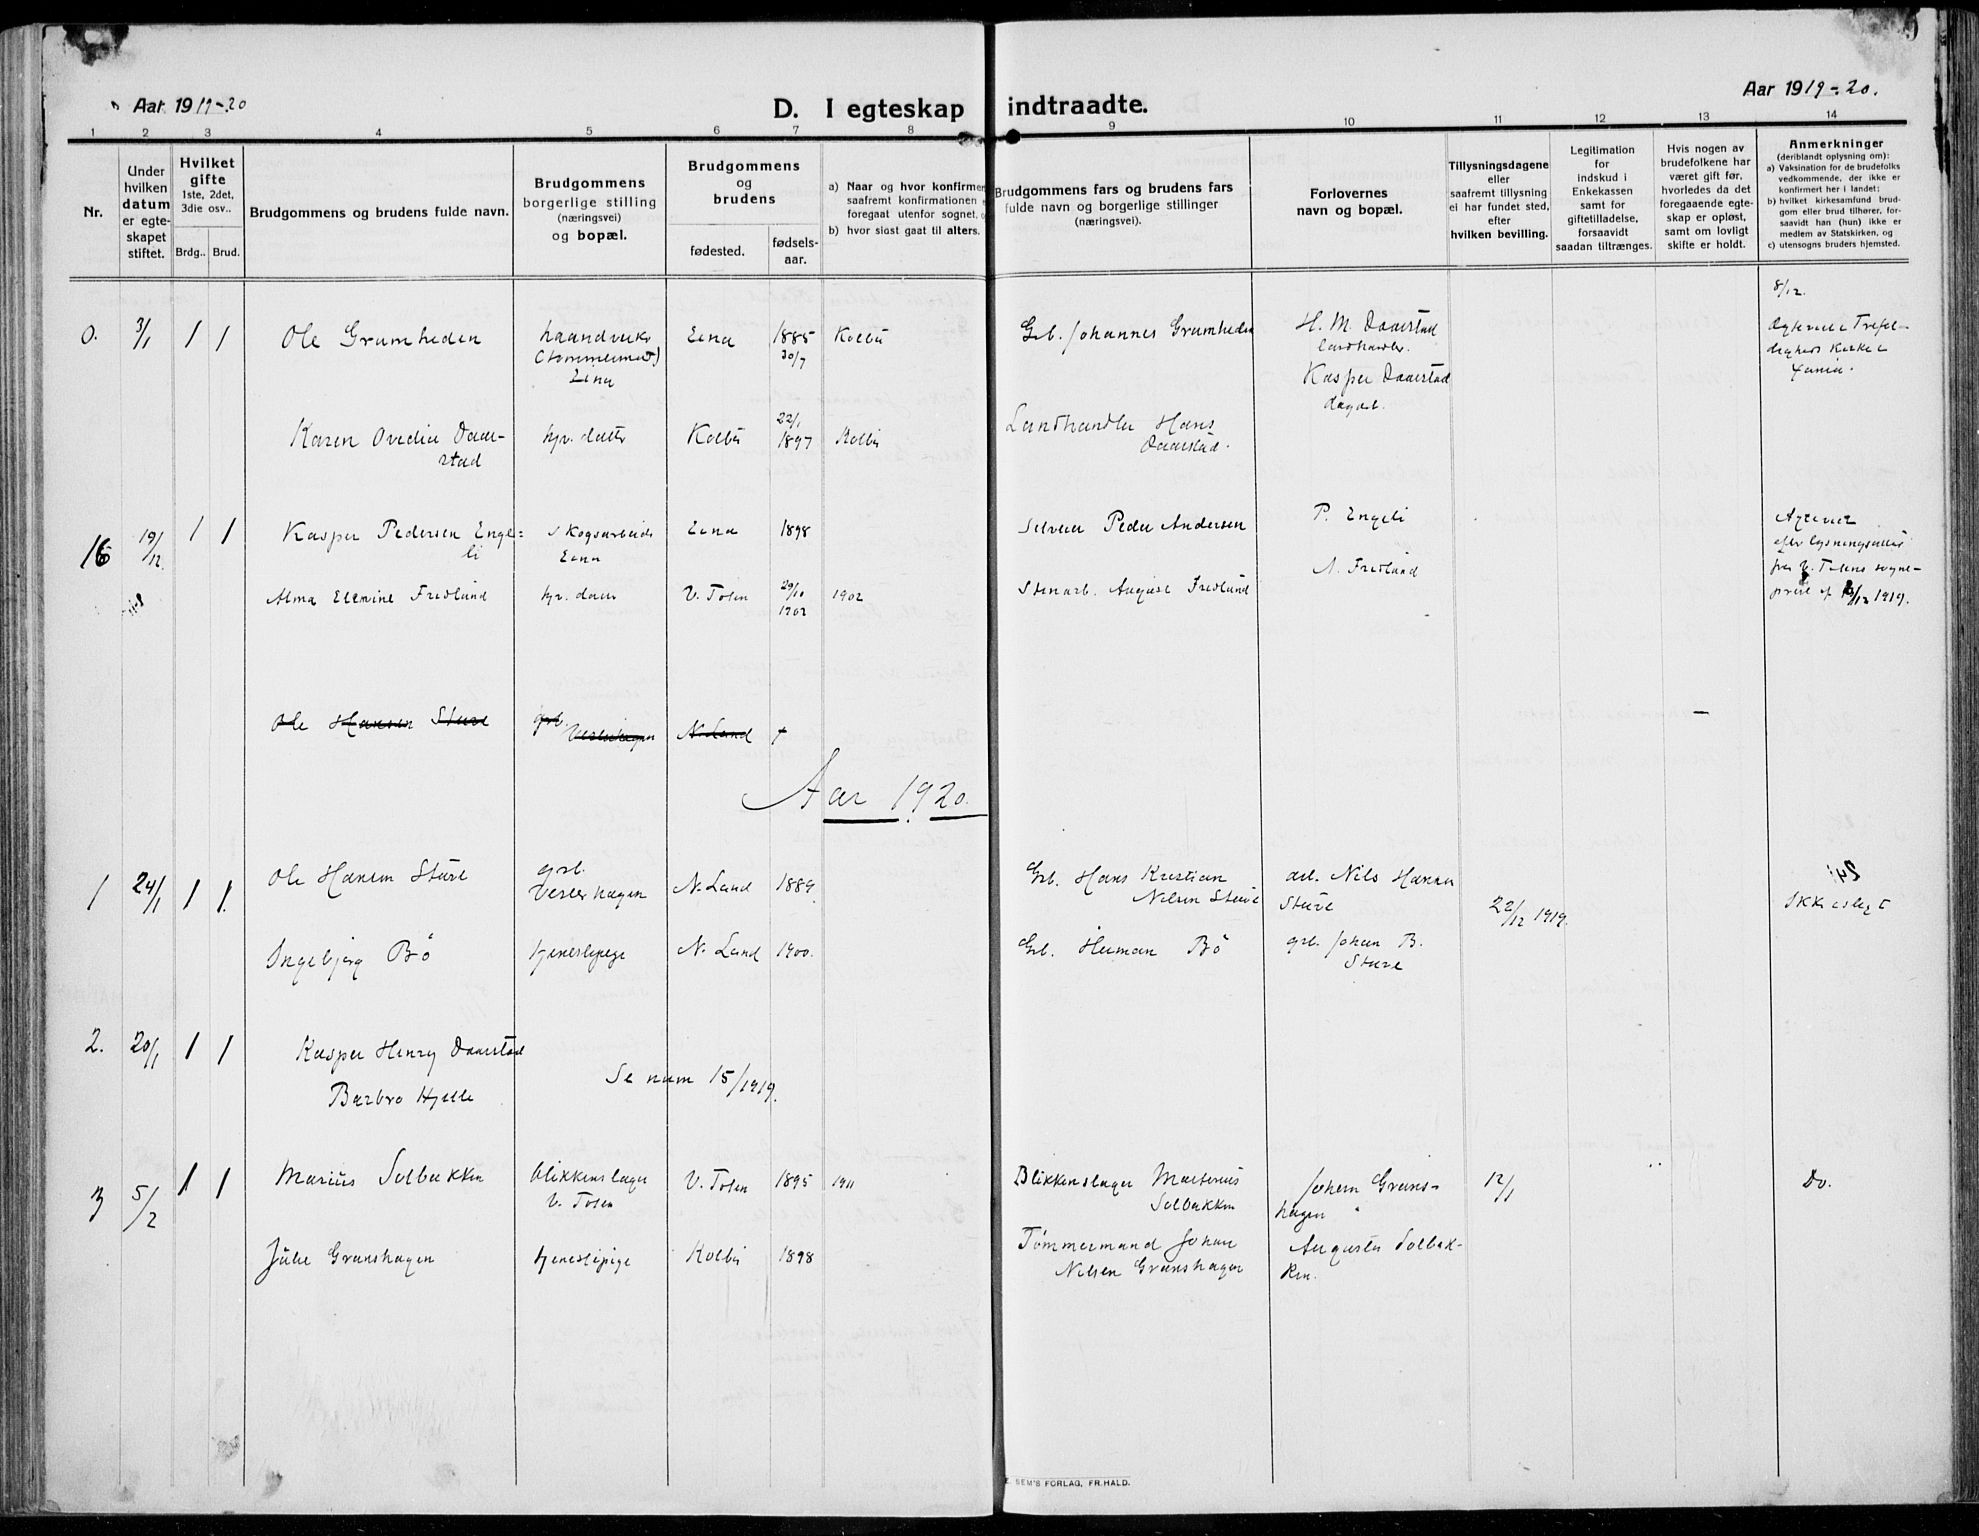 Aar 1919-20
D. I egteskap indtraadte.
Aar 1919-20.
1 2 3 4 5 6 7 8 9 10 11 12 13 14
Nr.
Under
hvilken
datum
er egte-
skapet
stiftet.
Hvilket
gifte
1ste, 2det,
3die osv..
Brdg.. Brud.
Brudgommens og brudens fulde navn.
Brudgommens
borgerlige stilling
(næringsvei)
og bopæl.
Brudgommens
og
brudens
fødested.
fødsels-
aar.
a) Naar og hvor konfirmer
saafremt konfirmationen
foregaat utenfor sognet,
b) hvor sidst gaat til alters.
Brudgommens fars og brudens fars
fulde navn og borgerlige stillinger
(næringsvei).
Forlovernes
navn og bopæl.
Tillysningsdagene
eller
saafremt tillysning
ei har fundet sted,
efter
hvilken bevilling.
Legitimation
for
indskud i
Enkekassen
samt for
giftetilladelse,
forsaavidt
saadan tiltrænges.
Hvis nogen av
brudefolkene har
været gift før,
hvorledes da det
foregaaende egte-
skap er opløst,
samt om lovligt
skifte er holdt.
Anmerkninger
(deriblandt oplysning om):
a) Vaksination for de brudefolks
vedkommende, der ikke er
konfirmert her i landet;
b) hvilket kirkesamfund brud-
gom eller brud tilhører, for-
saavidt han (hun) ikke er
medlem av Statskirken, og
c) utensogns bruders hjemsted.
8/12.
0. 3/1 1 1 Ole Grumheden haandverker Eina 1885 Kolbu Grb. Johannes Grumheden H. M. Daarstad
(tømmermand) 30/7 landhandler.
Eina Kasper Daarstad
dagarb.
Karen Ovedia Daar- hjv. datter Kolbu 22/1 1897 Kolbu Landhandler Hans
stad Daarstad.
16 19/12. 1 1 Kasper Pedersen Enge- Skogsarbeider Eina 1898 Selveier Peder Andersen P. Engeli
li Eina N. Fredlund
efter lysningsattest
fra V. Totens sogne-
prest af /12 1919.
Alma Elemine Fredlund hjv. datter V. Toten 29/10 1902 1902 Stenarb. August Fredlund
Ole Hansen Sture grb. N. Land
Aar 1920.
1 24/1 1 1. Ole Hansen Sture grb. N. Land 1889. Grb. Hans Kristian arb. Nils Hansen 22/12 1919. Ikke slegt
Nilsen Sture Sture
Ingebjørg Bö tjenestepige N. Land 1900. Grb. Herman Bö grb. Johan B.
Sture
2. 20/1 1 1 Kasper Henry Daarstad
Se num 15/1919.
Barbro Hjelle
3 5/2 1 1 Marius Solbakken blikkenslager V. Toten 1895 1911 Blikkenslager Martinius Johan Grans- 12/1 Do.
V. Toten Solbakken hagen
Julie Granshagen tjenestepige Kolbu 1898 Tømmermand Johan Augusta Solbak-
Nilsen Granshagen ken.
SEM'S FORLAG, FR. HALD.